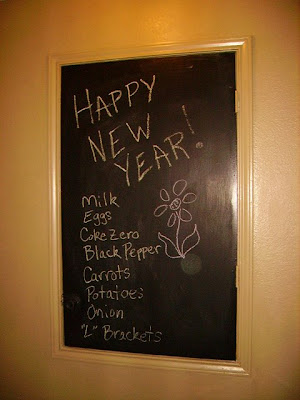 HAPPY
NEW
YEAR!
Milk
Eggs
Coke Zero
Black Pepper
Carrots
Potatoes
Onion
"L" Brackets